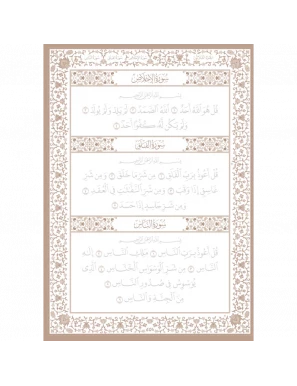 سورة الإخلاص
بسم الله الرحمن الرحيم
قل هو الله أحد ۝١ الله الصمد ۝٢ لم يلد ولم يولد ۝٣
ولم يكن له كفوا أحد ۝٤
سورة الفلق
بسم الله الرحمن الرحيم
قل أعوذ برب الفلق ۝١ من شر ما خلق ۝٢ ومن شر
غاسق إذا وقب ۝٣ ومن شر النفاثات في العقد ۝٤
ومن شر حاسد إذا حسد ۝٥
سورة الناس
بسم الله الرحمن الرحيم
قل أعوذ برب الناس ۝١ ملك الناس ۝٢ إله
الناس ۝٣ من شر الوسواس الخناس ۝٤ الذي
يوسوس في صدور الناس ۝٥
من الجنة والناس ۝٦